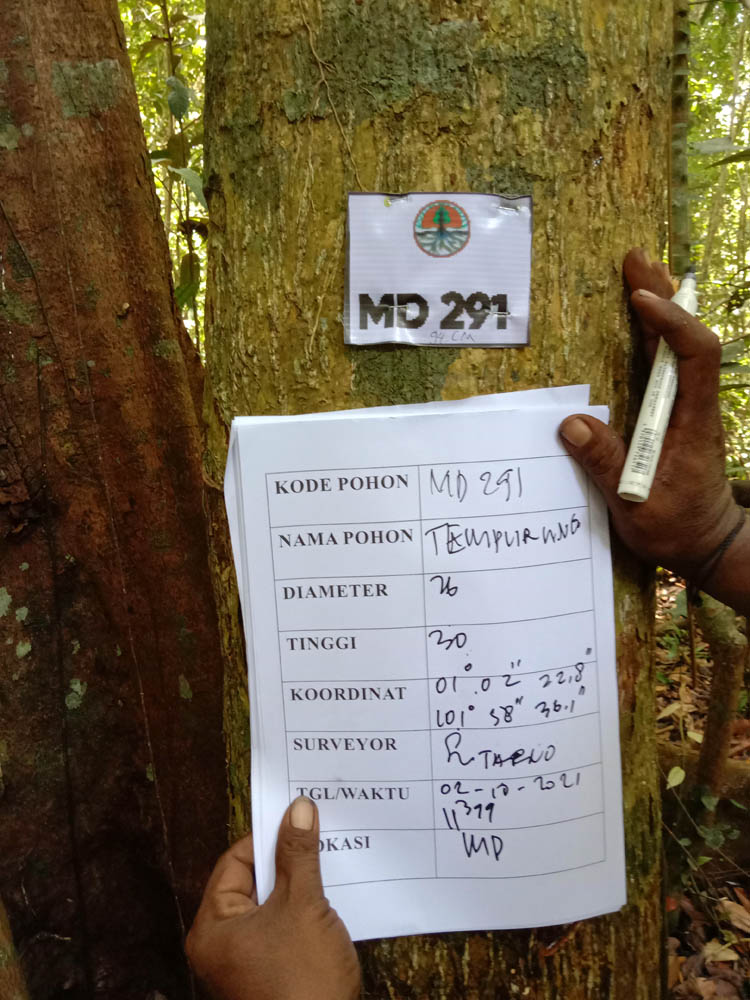 MD 291
94 CM
KODE POHON MD 291
NAMA POHON TEMPURUNG
DIAMETER 26
TINGGI 30
KOORDINAT 01° 02" 22,8"
101° 58" 36.1"
SURVEYOR TARNO
TGL/WAKTU 02-10-2021
OKASI MD